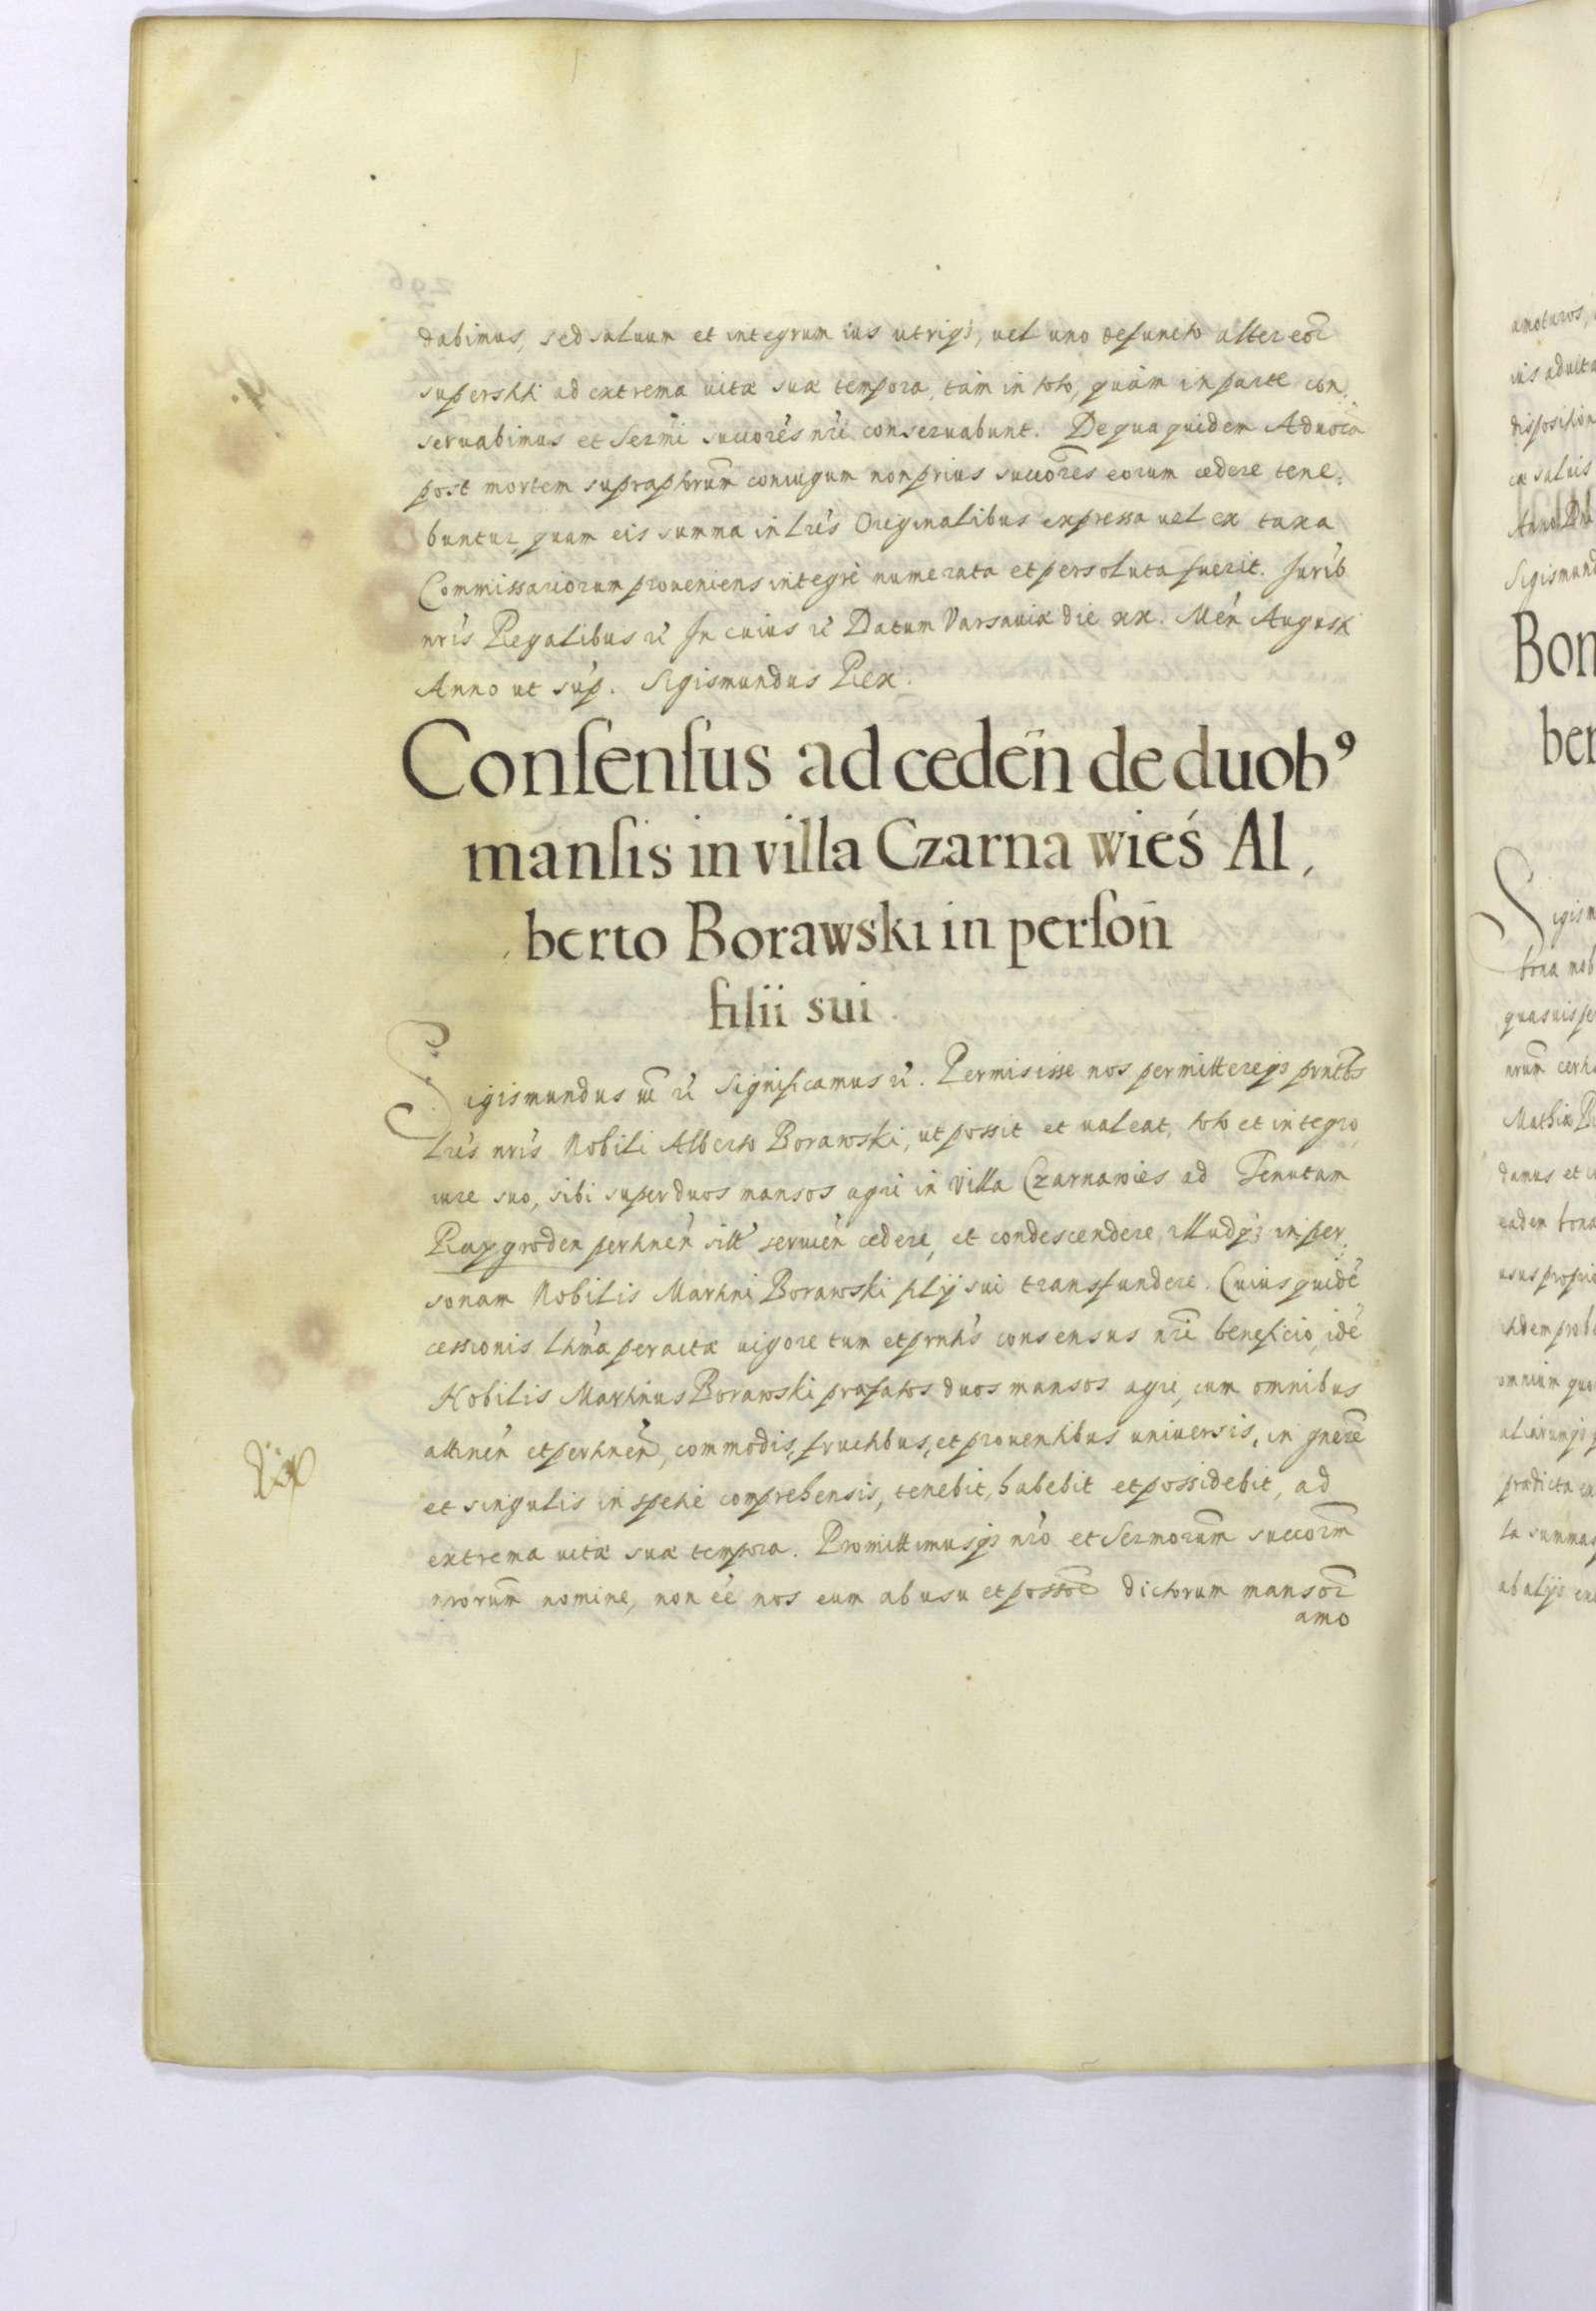 dabimus, sed saluum et integrum ius utriq;, uel uno defuncto alteri eor̃
superstiti ad extrema uitæ suæ tempora, tam in toto, quàm in parte con-
seruabimus et Sermi succorés nrĩ conseruabunt. De qua quidem Aduocã
post mortem supraptorum̃ coniugum non prius succores̃ eorum cedere tene-
buntur, quam eis summa in lrĩs Originalibus expressa uel ex taxa
Commissariorum proueniens integrè numerata et persoluta fuerit. Jurib
nrĩs Regalibus rc̃ In cuius rc̃ Datum Varsauiæ die xx. Meń Augusti
Anno ut sup̃. Sigismundus Rex.
Conſenſus ad cedeñ de duobꝰ
manſis in villa Czarna wieś Al,
,berto Borawski in perſoñ
filii sui.
Sigismundus uc̃ rc̃ Significamus rc̃. Permisisse nos permittereq; pñtibs
lrĩs nrĩs Nobili Alberto Borawski, ut possit et ualeat, toto et integro
iure suo, sibi super duos mansos agri in Villa Czarnawies ad Tenutam
Raygroden pertineń sitt seruień cedere, et condescendere, illudq; in per-
sonam Nobilis Martini Borawski filij sui transfundere. Cuius quidé
cessionis ltiḿa peractæ uigore tum et pñtis consensus nrĩ beneficio, idé
Nobilis Martinus Borawski præfatos duos mansos agri, cum omnibus
attineń et pertineń, commodis, fructibus, et prouentibus uniuersis, in gnerẽ
et singulis in spetié comprehensis, tenebit, habebit et possidebit, ad
extrema uitæ suæ tempora. Promittimusq; nr̃o et Sermorum̃ succorm̃
nrorum̃ nomine, non éé nos eum ab usu et posse͠ dictorum mansor̃
amo
296
amoturos,
disposition
Anno Dni
Sigismund
Bon
ber
Sigism
bona nob
Mathiæ
damus et
eadem bona
usus proprio
omnium
prædicta
ab alijs